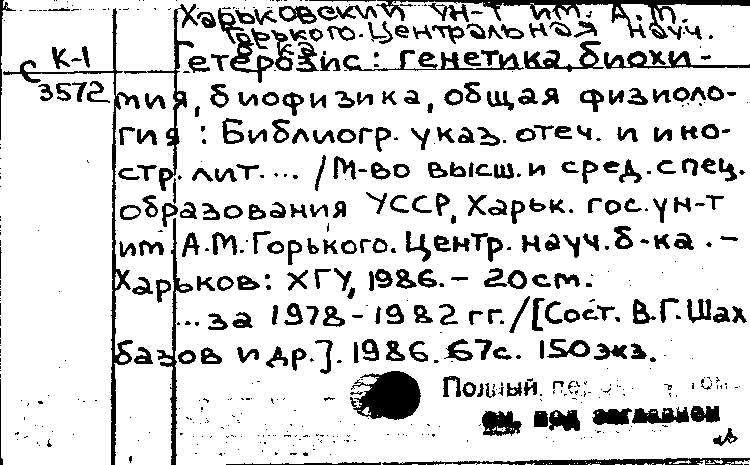 Харьковский ун-т им. А.М.
Горького. Центральная науч.
б-ка
К-1
Гетерозис: генетика, биохи-
С 3572
мия, биофизика, общая физиоло-
гия: Библиогр. указ. отеч. и ино-
стр. лит. ... /М-во высш. и сред. спец.
образования УССР, Харьк. гос. ун-т
им. А.М. Горького. Центр. науч. б-ка. –
Харьков: ХГУ, 1986. – 20 см.
...за 1978-1982 гг. /[Сост. В.Г. Шах
базов и др.]. 1986. 67с. 150 экз.
Полный
см. под заглавием